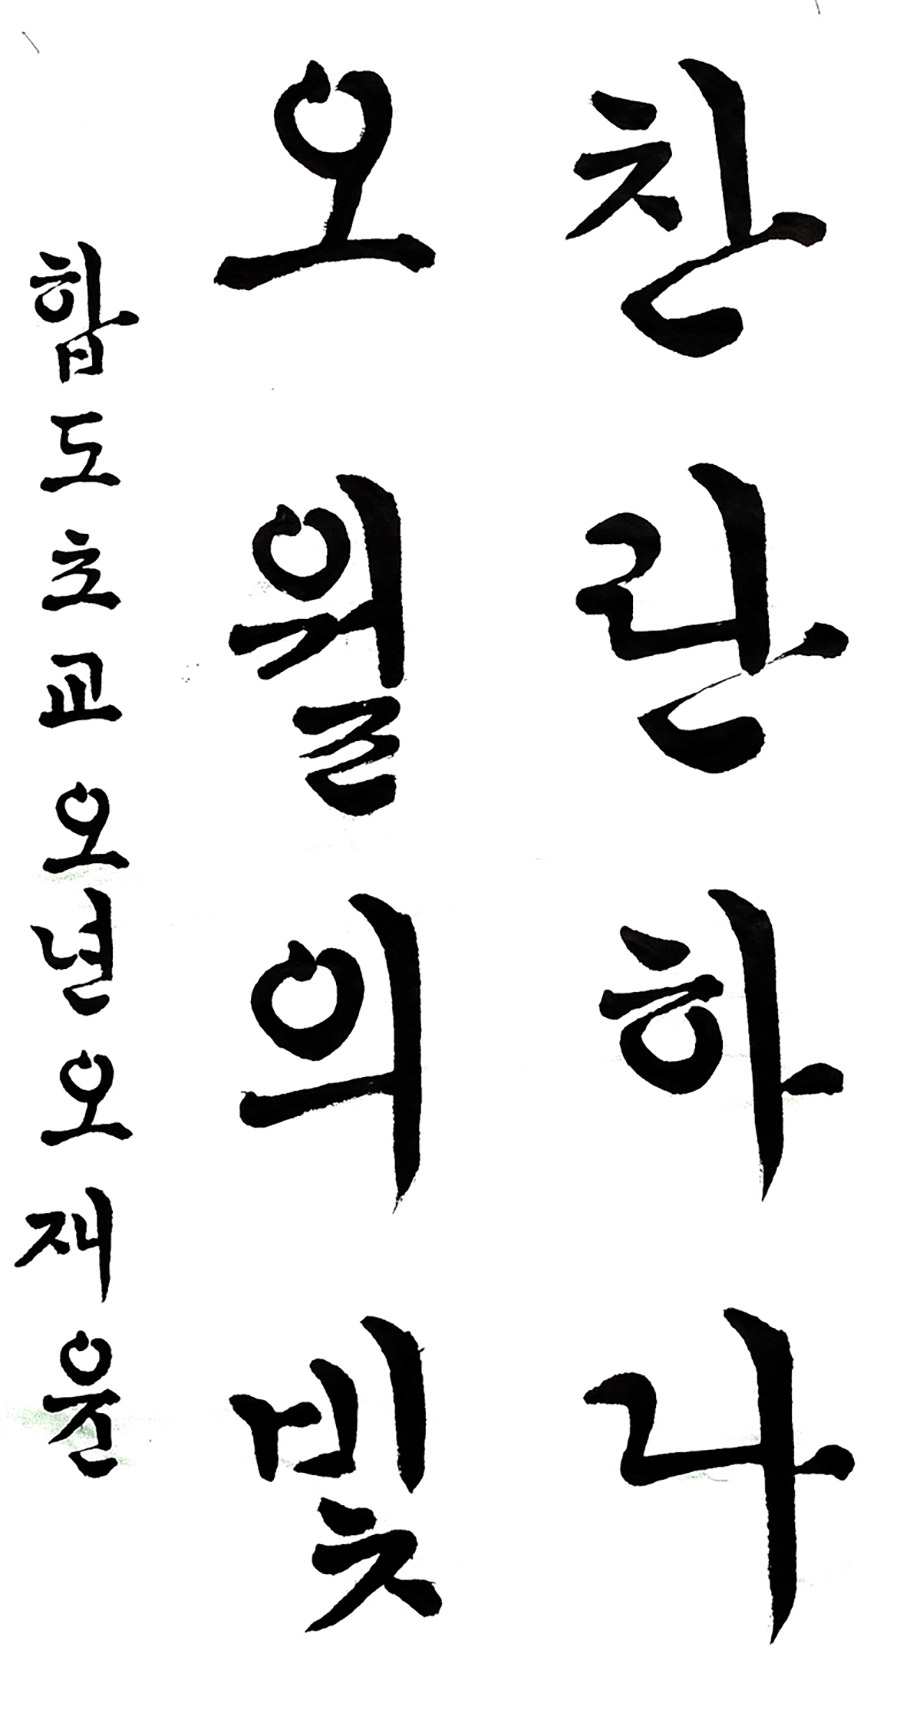 찬란하나
오월의빛
합도초교 오년 오재윤